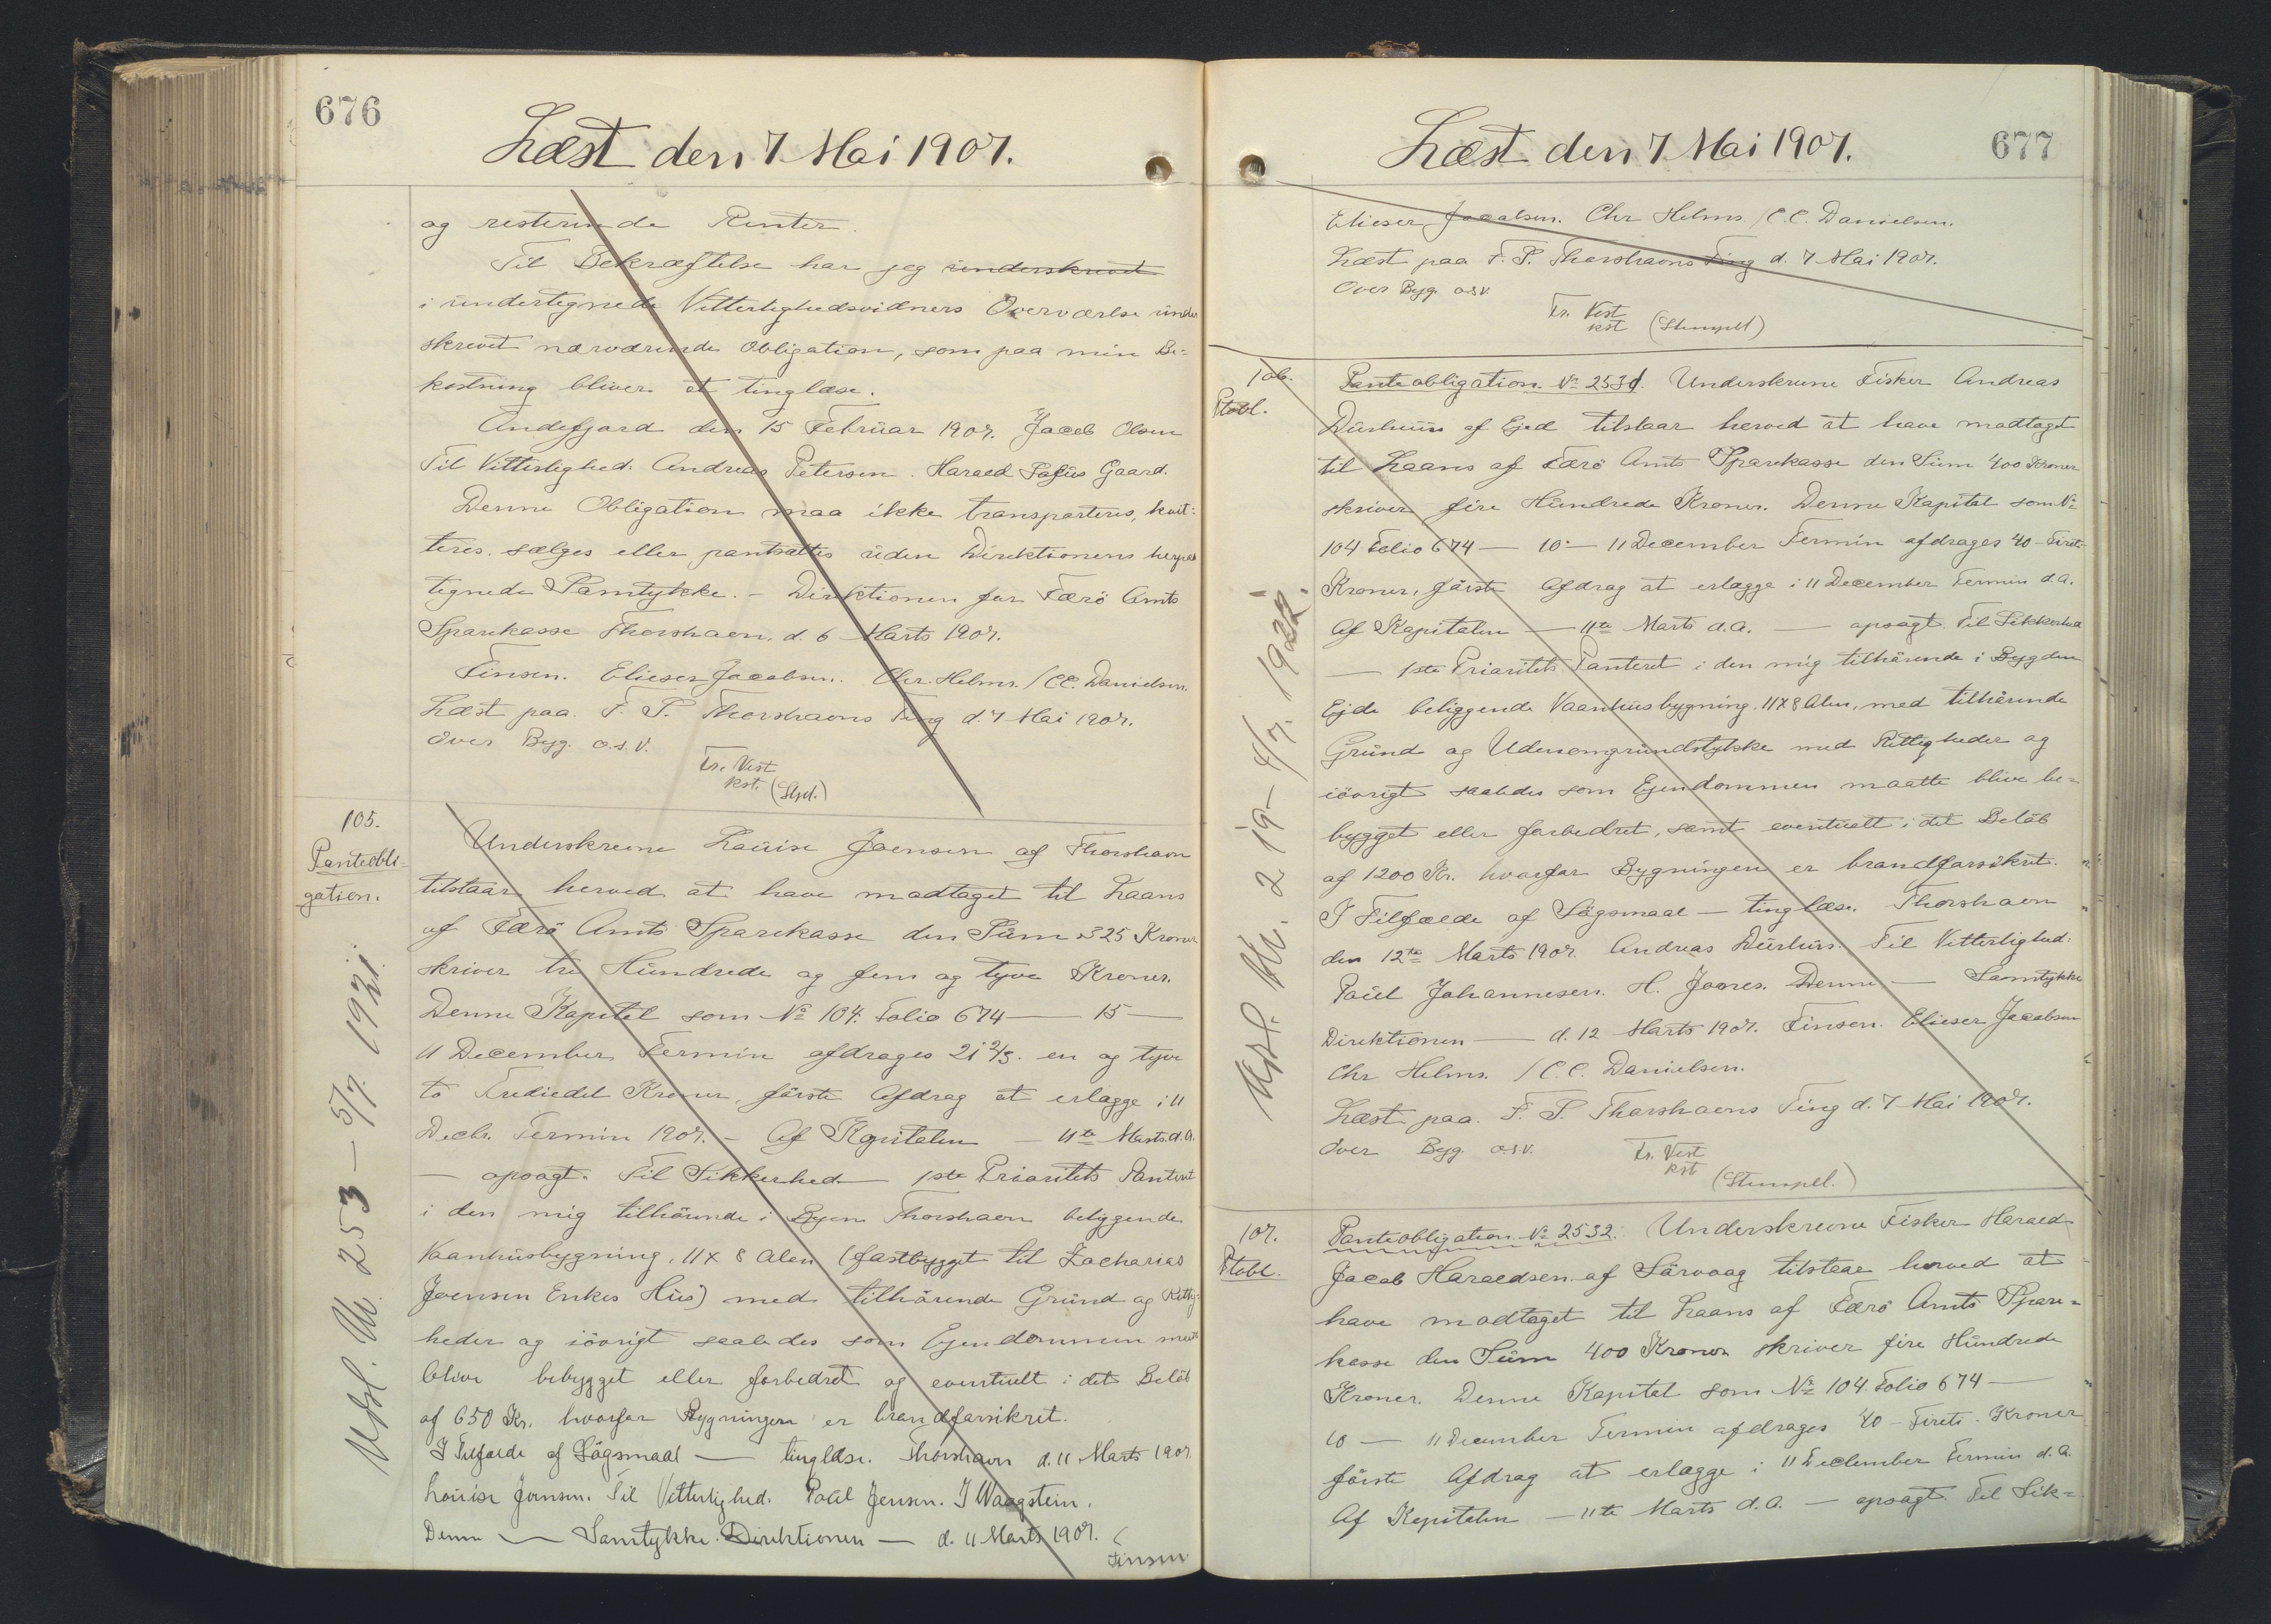 676
Læst den 7 Mai 1907.
og resterende Renter.
Til Bekræftelse har jeg underskrevet
i undertegnede Vitterlighedsvidners Overværelse under
skrevet nærværende Obligation, som paa min Be-
kostning bliver at tinglæse.
Andefjord den 15 Februar 1907. Jacob Olsen
Til Vitterlighed: Andreas Petersen. Harald Gaard.
Denne Obligation maa ikke transporteres, kvit-
teres, sælges eller pantsættes uden Direktionens herpaa
tegnede Samtykke. - Direktionen for Færö Amts
Sparekasse Thorshavn, d. 6 Marts 1907.
Finsen. Elieser Jacobsen. Chr. Helms. / C.C. Danielsen.
Læst paa F. S. Thorshavns Ting d. 7 Mai 1907.
Over Byg. o.s.v.
Er. Vist
kst. (Stpl.)
105.
Panteobli-
gation.
Underskrevne Louise Joensen af Thorshavn
tilstaar herved at have modtaget til Laans
af Færö Amts Sparekasse den Sum 325 Kroner
skriver tre Hundrede og fem og tyve Kroner.
Denne Kapital som No 104. Folio 674 — 15 —
11 December Termin afdrages 21 2/3. en og tyve
to Trediedel Kroner, förste Afdrag at erlægge i 11
Decbr. Termin 1907. - Af Kapitalen — 11te Marts d.A.
— opsagt. Til Sikkerhed — 1ste Prioritets Panteret
i den mig tilhörende i Byen Thorshavn beliggende
Vaanhusbygning, 11 x 8 Alen (fastbygget til Zacharias
Joensen Enkes Hus) med tilhörende Grund og Rettig-
heder og iövrigt saaledes som Ejendommen maatte
blive bebygget eller forbedret og eventuelt i det Belöb
af 650 Kr. hvorfor Bygningen er brandforsikret.
I Tilfælde af Sögsmaal — tinglæse. Thorshavn d. 11 Marts 1907.
Louise Joensen. Til Vitterlighed. Poul Jensen. J Waagstein.
Denne — Samtykke. Direktionen — d. 11 Marts 1907.
Finsen
Læst den 7 Mai 1907.
677
Elieser Jacobsen. Chr Helms / C.C. Danielsen.
Læst paa F. S. Thorshavns Ting d. 7 Mai 1907.
Over Byg. o.s.v.
Er. Vist
kst (Stempel)
106.
Ptobl.
Panteobligation No 2531. Underskrevne Fisker Andreas
Durhuus af Ejed tilstaar herved at have modtaget
til Laans af Færö Amts Sparekasse den Sum 400 Kroner
skriver fire Hundrede Kroner. Denne Kapital som No
104 Folio 674 — 10 — 11 December Termin afdrages 40 - Fireti
Kroner, förste Afdrag at erlægge i 11 December Termin d.A.
Af Kapitalen — 11te Marts d.A. — opsagt. Til Sikkerhed
— 1ste Prioritets Panteret i den mig tilhörende i Bygden
Ejde beliggende Vaanhusbygning, 11x8 Alen, med tilhörende
Grund og Udensomgrundstykke med Rettigheder og
iövrigt saaledes som Ejendommen maatte blive be-
bygget eller forbedret, samt eventuelt i det Belöb
af 1200 Kr. hvorfor Bygningen er brandforsikret.
I Tilfælde af Sögsmaal — tinglæse. Thorshavn
den 12te Marts 1907. Andreas Durhus. Til Vitterlighed:
Poul Johannesen. H. Joenes. Denne — Samtykke
Direktionen — d. 12 Marts 1907. Finsen. Elieser Jacobsen
Chr Helms. / C.C. Danielsen.
Læst paa F. S. Thorshavns Ting d. 7 Mai 1907.
Over Byg. o.s.v.
Er. Vist
kst (Stempel.)
107.
Ptobl.
Panteobligation No 2532. Underskrevne Fisker Harald
Jacob Haraldsen af Sörvaag tilstaar herved at
have modtaget til Laans af Færö Amts Spare-
kasse den Sum 400 Kroner skriver fire Hundrede
Kroner. Denne Kapital som No 104. Folio 674 —
10 — 11 December Termin afdrages 40 - Fireti - Kroner
förste Afdrag at erlægge i 11 December Termin d.A.
Af Kapitalen — 11te Marts d.A. — opsagt. Til Sik-